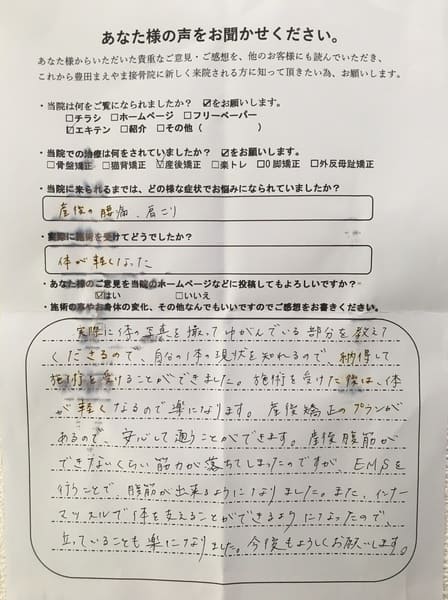 あなた様の声をお聞かせください。
あなた様からいただいた貴重なご意見・ご感想を、他のお客様にも読んでいただき、
これから豊田まえやま接骨院に新しく来院される方に知って頂きたい為、お願いします。
・当院は何をご覧になられましたか? ☑をお願いします。
□チラシ □ホームページ □フリーペーパー
☑エキテン □紹介 □その他( )
・当院での治療は何をされていましたか? ☑をお願いします。
□骨盤矯正 □猫背矯正 ☑産後矯正 □楽トレ □O脚矯正 □外反母趾矯正
・当院に来られるまでは、どの様な症状でお悩みになられていましたか?
産後の腰痛、肩こり
・実際に施術を受けてどうでしたか?
体が軽くなった
・あなた様のご意見を当院のホームページなどに投稿してもよろしいですか?
☑はい □いいえ
・施術の声やお身体の変化、その他なんでもいいですのでご感想をお書きください。
実際に体の写真を撮ってゆがんでいる部分を教えて
くださるので、自分の体の現状を知れるので、納得して
施術を受けることができました。施術を受けた後は、体
が軽くなるので楽になります。産後矯正のプランが
あるので、安心して通うことができます。産後腹筋が
できないくらい筋力が落ちてしまったのですが、EMSを
行うことで、腹筋が出来るようになりました。また、インナー
マッスルで体を支えることができるようになったので、
立っていることも楽になりました。今後もよろしくお願いします。